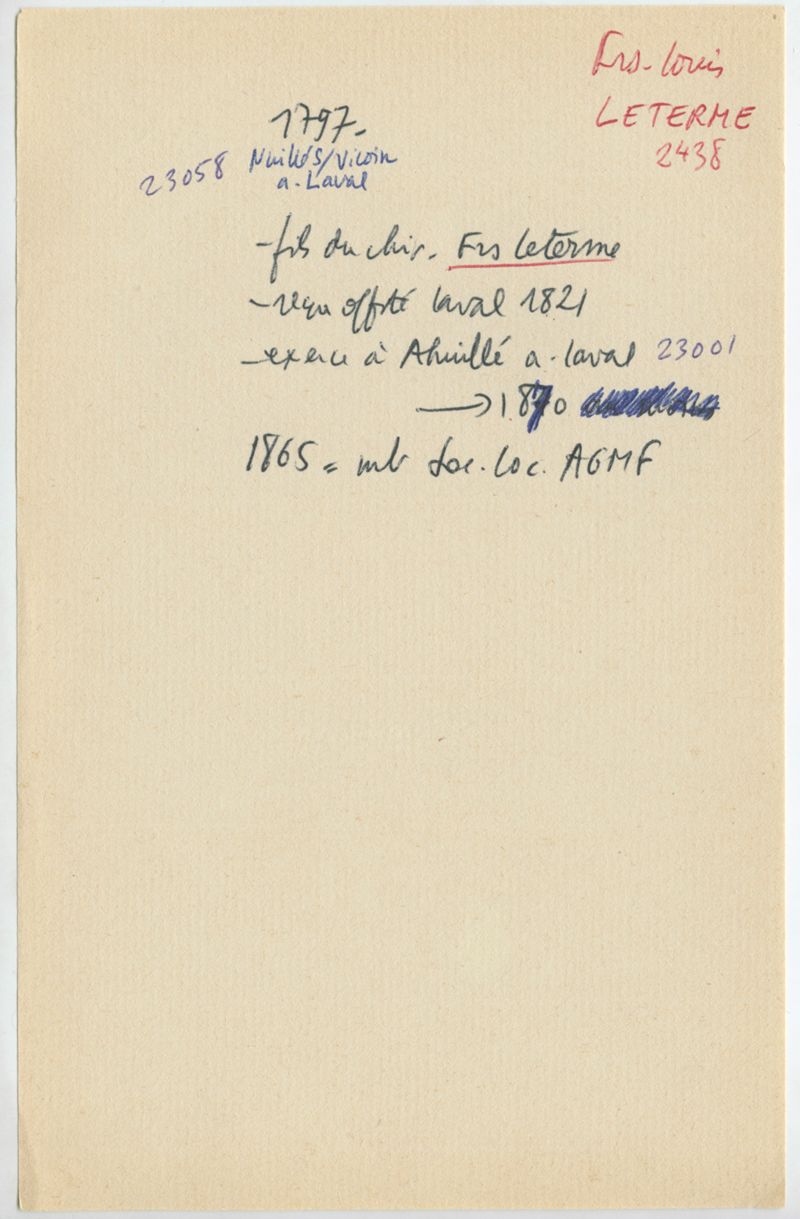 Frs-Louis
LETERME
2438
1797-
23058 Nuillé s/Vicoin
a. Laval
- fils du chir. Frs Leterme
- reçu offsté Laval 1821
- exerce à Ahuillé a. Laval 23001
→ 1870
1865 = mb Soc. Loc. AGMF